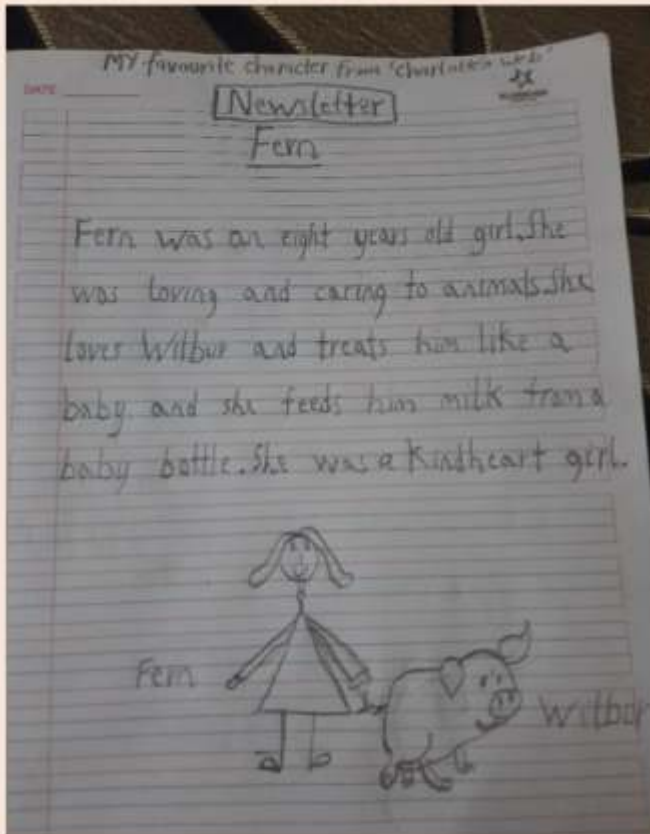 MY favourite character from 'Charlotte's web'
DATE
Newsletter
Fern
Fern was an eight years old girl. She
was loving and caring to animals. She
loves Wilbur and treats him like a
baby and she feeds him milk from a
baby bottle. She was a kindheart girl.
Fern
Wilbur